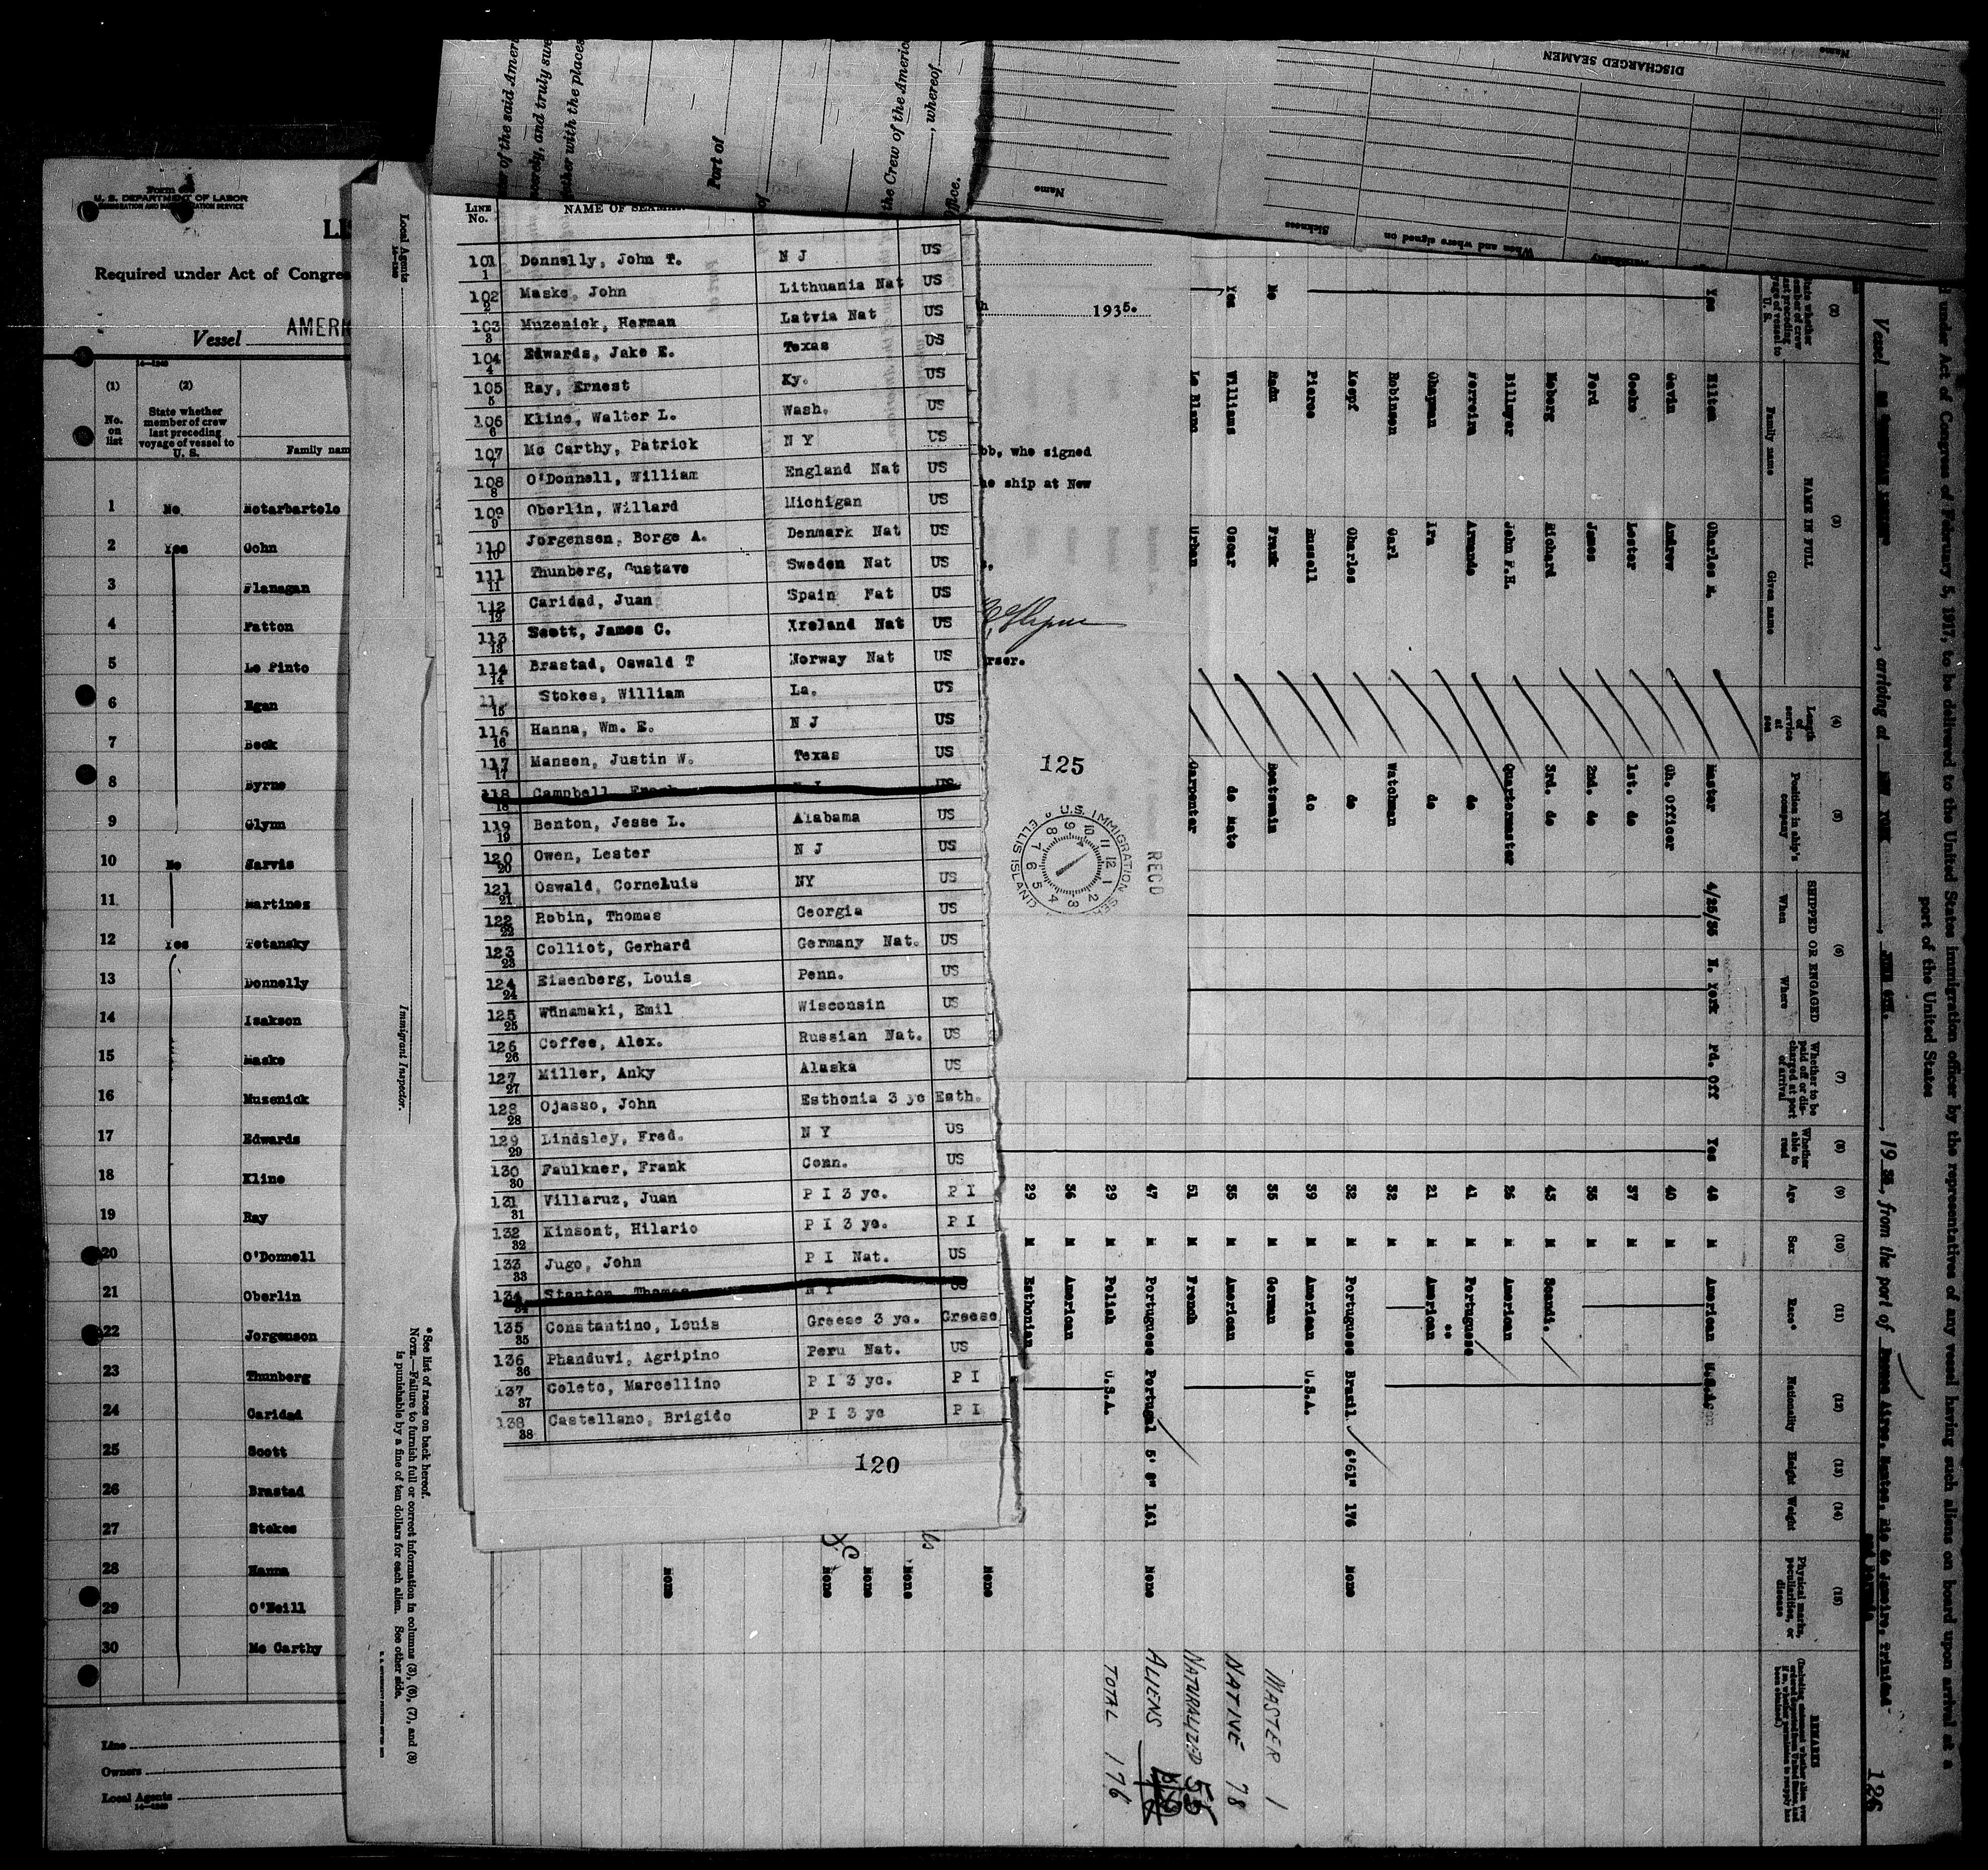 of the said Ameri
and truly swe
with the places
Port of
the Crew of the Americ
, whereof
ffice.
DISCHARGED SEAMEN
Name
Name
Sickness
When and where signed on
U. S. DEPARTMENT OF LABOR
Required under Act of Congre
Vessel AMERI
(1) (2)
No. on list
State whether member of crew last preceding voyage of vessel to U. S.
Family nam
1 No Notarbartolo
2 Yes Cohn
3 Flanagan
4 Patton
5 Lo Pinto
6 Egan
7 Beck
8 Byrne
9 Glynn
10 No Jarvis
11 Martinez
12 Yes Totansky
13 Donnelly
14 Isakson
15 Maske
16 Muzenick
17 Edwards
18 Kline
19 Ray
20 O'Donnell
21 Oberlin
22 Jorgenson
23 Thunberg
24 Caridad
25 Scott
26 Brastad
27 Stokes
28 Hanna
29 O'Neill
30 Mc Carthy
Line
Owners
Local Agents
Local Agents
Immigrant Inspector.
*See list of races on back hereof.
NOTE.—Failure to furnish full or correct information in columns (3), (6), (7), and (8)
is punishable by a fine of ten dollars for each alien. See other side.
LINE No. NAME OF SEAMAN
101 1 Donnelly, John T. N J US
102 2 Maske, John Lithuania Nat US
103 3 Muzenick, Herman Latvia Nat US
104 4 Edwards, Jake E. Texas US
105 5 Ray, Ernest Ky. US
106 6 Kline, Walter L. Wash. US
107 7 Mc Carthy, Patrick N Y US
108 8 O'Donnell, William England Nat US
109 9 Oberlin, Willard Michigan US
110 10 Jorgensen, Borge A. Denmark Nat US
111 11 Thunberg, Gustave Sweden Nat US
112 12 Caridad, Juan Spain Fat US
113 13 Scott, James C. Ireland Nat US
114 14 Brastad, Oswald T Norway Nat US
11 15 Stokes, William La. US
116 16 Hanna, Wm. E. N J US
117 17 Mansen, Justin W. Texas US
118 18 Campbell US
119 19 Benton, Jesse L. Alabama US
120 20 Owen, Lester N J US
121 21 Oswald, Corneluis NY US
122 22 Robin, Thomas Georgia US
123 23 Colliot, Gerhard Germany Nat. US
124 24 Eisenberg, Louis Penn. US
125 25 Wanamaki, Emil Wisconsin US
126 26 Coffee, Alex. Russian Nat. US
127 27 Miller, Anky Alaska US
128 28 Ojasso, John Esthonia 3 yc Esth.
129 29 Lindsley, Fred. N Y US
130 30 Faulkner, Frank Conn. US
131 31 Villaruz, Juan P I 3 yc. P I
132 32 Kinsont, Hilario P I 3 yc. P I
133 33 Jugo, John P I Nat. US
134 34 Stanton, Thomas N Y US
135 35 Constantino, Louis Greese 3 yc. Greese
136 36 Phanduvi, Agripino Peru Nat. US
137 37 Coleto, Marcellino P I 3 yc. P I
138 38 Castellano, Brigido P I 3 yc P I
120
1935.
bb, who signed
he ship at New
rser.
125
U.S. IMMIGRATION SER
ELLIS ISLAND
REC'D
under Act of Congress of February 5, 1917, to be delivered to the United States immigration officer by the representatives of any vessel having such aliens on board upon arrival at a
port of the United States
Vessel , arriving at NEW YORK , 1935, from the port of Buenos Aires, Santos, Rio de Janeiro, Trinidad
126
(2) (3) (4) (5) (6) (7) (8) (9) (10) (11) (12) (13) (14) (15)
NAME IN FULL
Family name
Given name
Length of service at sea
Position in ship's company
SHIPPED OR ENGAGED
When
Where
Whether to be paid off or discharged at port of arrival
Whether able to read
Age
Sex
Race*
Nationality
Height
Weight
Physical marks, peculiarities, or disease
REMARKS
Yes Hilton Charles M. Master 4/25/35 N. York Pd. Off Yes 48 M American
Gavin Andrew Ch. Officer 40 M
Cooke Lester 1st. do 37 M
Ford James 2nd. do 35 M
Moberg Richard 3rd. do 43 M Scandi.
Billmyer John F.H. Quartermaster 26 M American
Ferreira Armando do 41 M Portuguese
Chapman Ira do 21 M American
Robinson Carl Watchman 32 M
Koepf Charles do 32 M Portuguese Brasil 176 None
Pierce Russell do 39 M American U.S.A.
No Radu Frank Boatswain 35 M German
Yes Williams Oscar do Mate 35 M American
Le Blanc Urban Carpenter 51 M French
47 M Portuguese Portugal 5' 8" 161 None
29 M Polish U.S.A.
36 M American
29 M Esthonian
None
None
None
None
None
MASTER 1
NATIVE 78
NATURALIZED 55
ALIENS
TOTAL 176